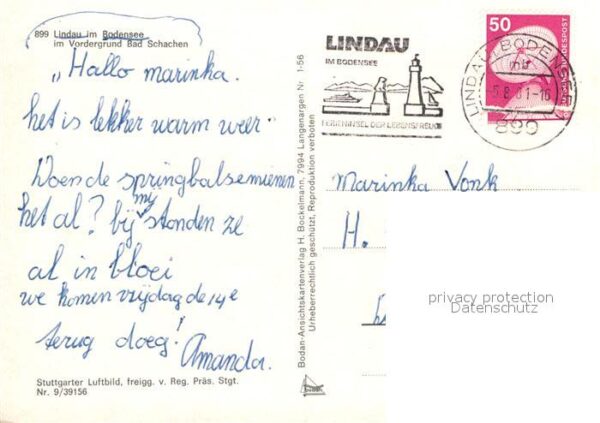 899 Lindau im Bodensee
im Vordergrund Bad Schachen
„Hallo marinka.
het is lekker warm weer.
Doen de springbalsemienen
het al? bij my stonden ze
al in bloei
we komen vrijdag de 14e
terug doeg!
Amanda.
Stuttgarter Luftbild, freigg. v. Reg. Präs. Stgt.
Nr. 9/39156
Bodan-Ansichtskartenverlag H. Bockelmann, 7994 Langenargen Nr. 1-56
Urheberrechtlich geschützt, Reproduktion verboten
LINDAU
IM BODENSEE
FERIENINSEL DER LEBENSFREUDE
50
DEUTSCHE BUNDESPOST
LINDAU, BODENSEE
mb
-5.8.81-16
890
Marinka Vonk
H.
privacy protection
Datenschutz